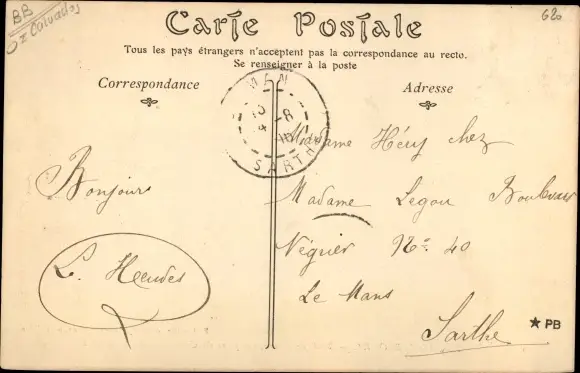 BB
Calvados
620
Carte Postale
Tous les pays étrangers n'acceptent pas la correspondance au recto.
Se renseigner à la poste
Correspondance
Adresse
MAN
SARTHE
Bonjour
L. Heudes
Madame Héry chez
Madame Legou Boulevard
Néguier N° 40
Le Mans
Sarthe
★ PB